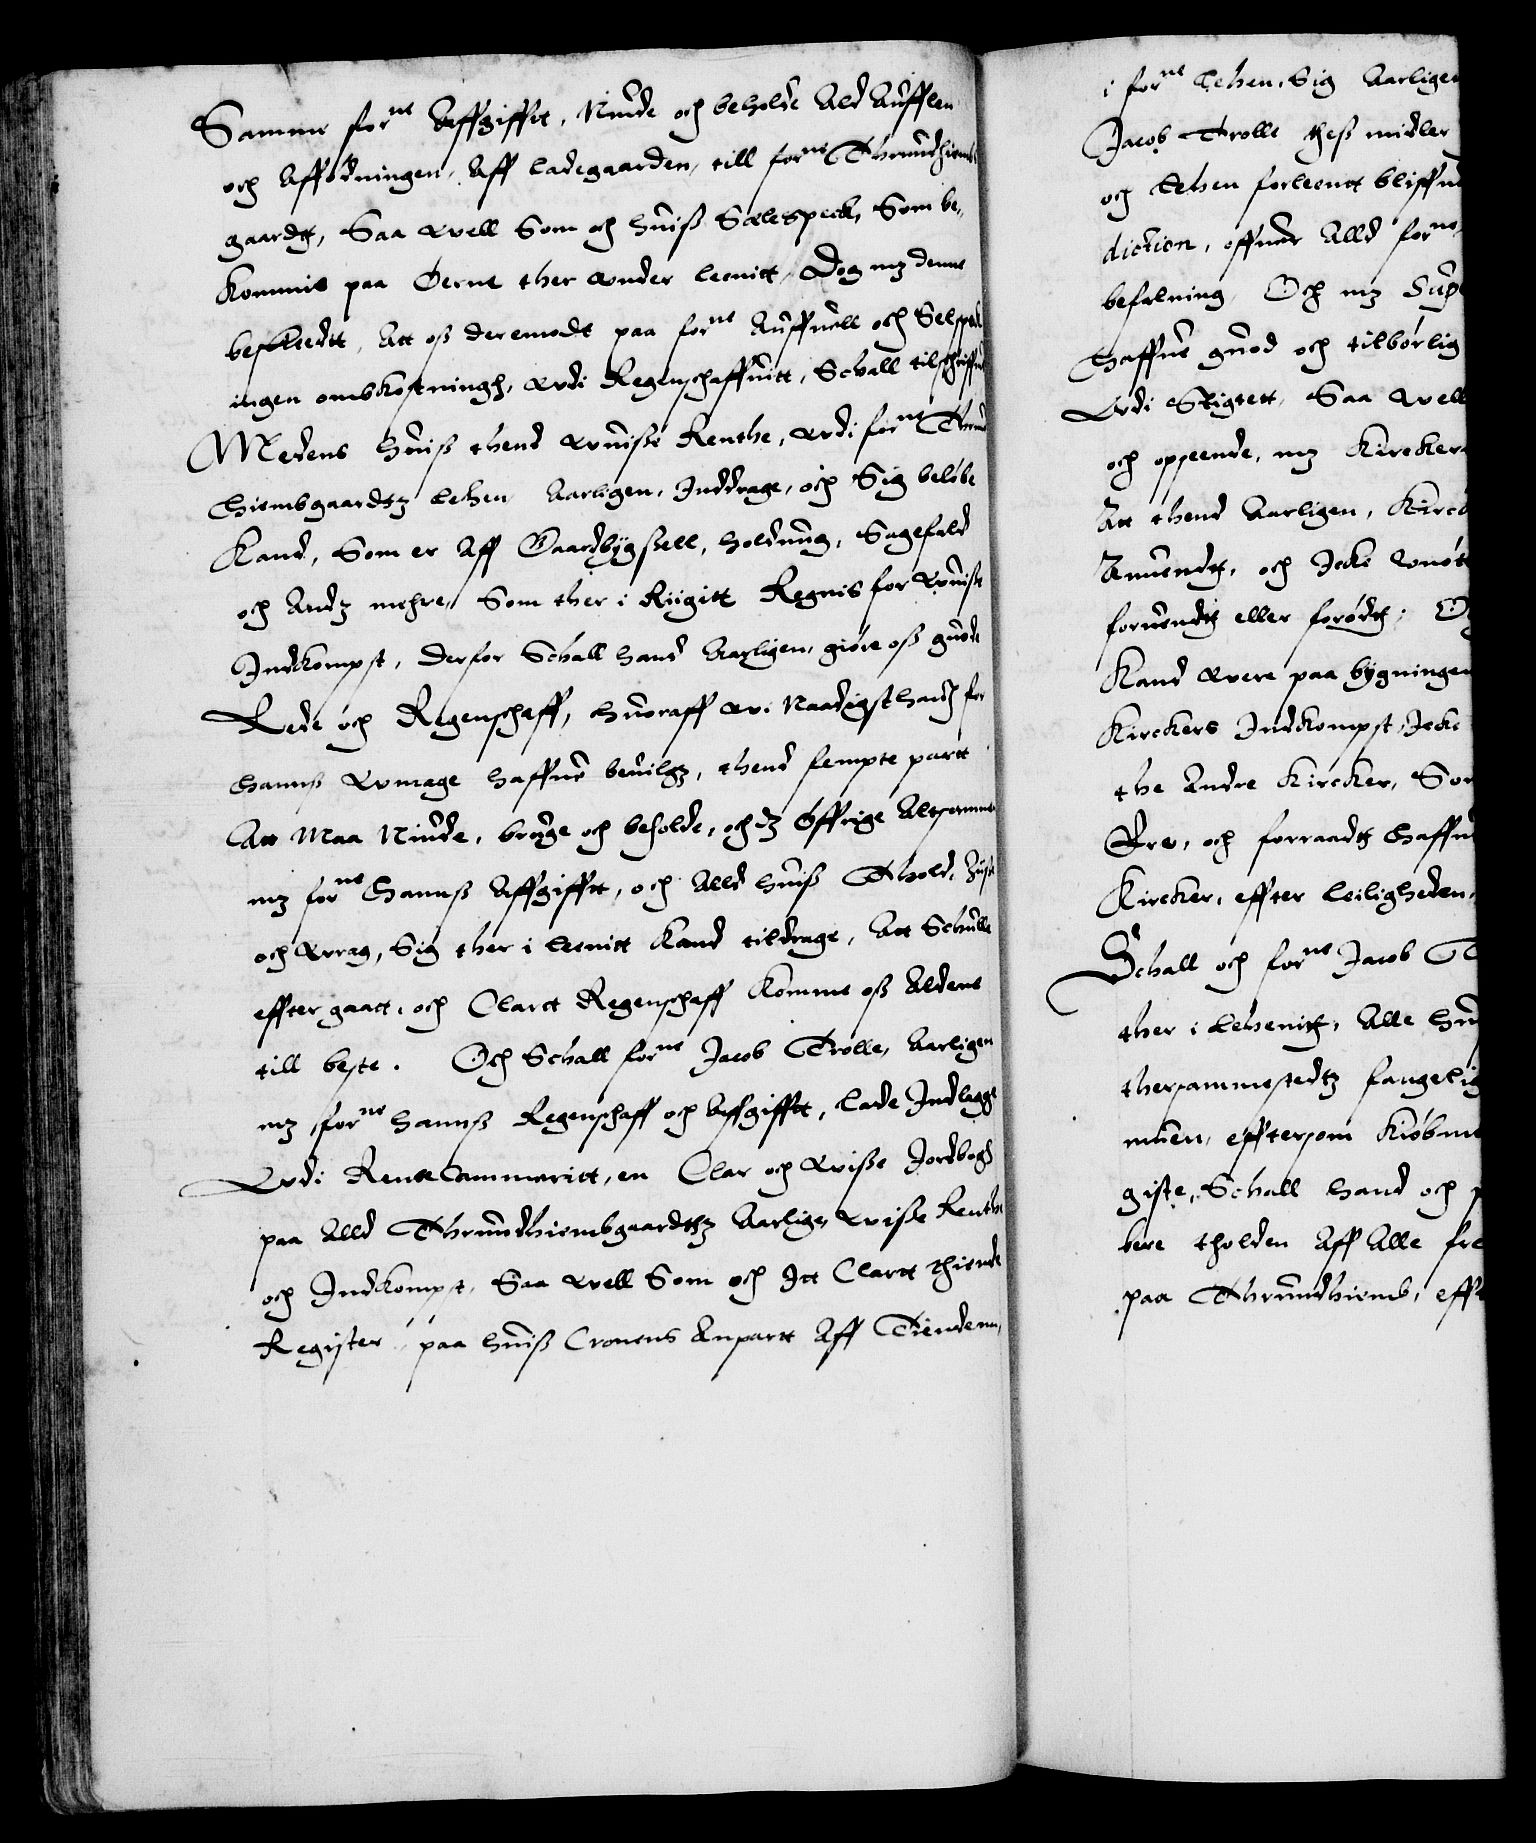 Samme forne Affgifftt, Niude och beholde Ald Aufflen
och Affødningen, Aff ladegaarden, till forne Thrundhiembs
gaardt, Saa well Som och huiß Sælespeck, Som be,,
kommis paa Øerne ther under leenitt, Dog mz denne
beskeedtt, Att oß deremodt paa forne Auffuell och Selspeck
ingen ombkostningh, udi Regenschaffuitt, Schall tilschriffuis
Medens huiß thend uuiße Renthe, udi forne Thrund
hiembgaardtz lehen Aarligen, Inddrage, och Sig beløbe
Kand, Som er Aff Gaardbygssell, holdning, Sagefald
och Andz mehre, Som ther i Riigitt Regnis for uuiße
Indkompst, derfor Schall hand Aarligen, giøre oß guode
Rede och Regenschaff, huoraff wi Naadigst haffr for
hannß Umage haffue beuilgz, thend fempte partt
Att Maa Niude, bruge och beholde, och dz Øffrige Altsammen
mz forne hannß Affgifftt, och Alld huiß Thold, Siiße
och Wrag, Sig ther i leenitt kand tildrage, Att Schulle
effter gaatt, och Clartt Regenschaff komme oß Aldene
till beste. Och Schall forne Jacob Trolle, Aarligen
mz forne hannß Regenschaff och Affgifftt, lade Indlegge
Udi Rentecammeritt, en Clar och wiße Jordbogh
paa Alld Thrundhiembgaardtz Aarlige wiße Renthe
och Indkompst, Saa well Som och Itt Clartt thiende
Register, paa huiß Cronens Anpartt Aff Tiendenn,
i forne Lehen, Sig Aarligen
Jacob Trolle theß midler
och Lehen forleentt bliffue
diction, offuer Alld forne
befalning, Och mz Sup
haffue guod och tilbørlig
Udi Stigtett, Saa well
och opseende, mz Kircker
Att thend Aarligen, Kirck
Anuendt, och Icke unøt
foruendtt eller forødt; O
Kand were paa bygningen
Kirckers Indkompst, Icke
the Andre Kircker, Som
Øre, och forraadt haffue
Kircker, effter leiligheden,
Schall och forne Jacob T
ther i Lehenitt, Alle hu
thersammestedtz fangelig
muen, efftersom Kiøbme
giste, Schall hand och
bere tholden Aff Alle fre
paa Thrundhiemb, effte